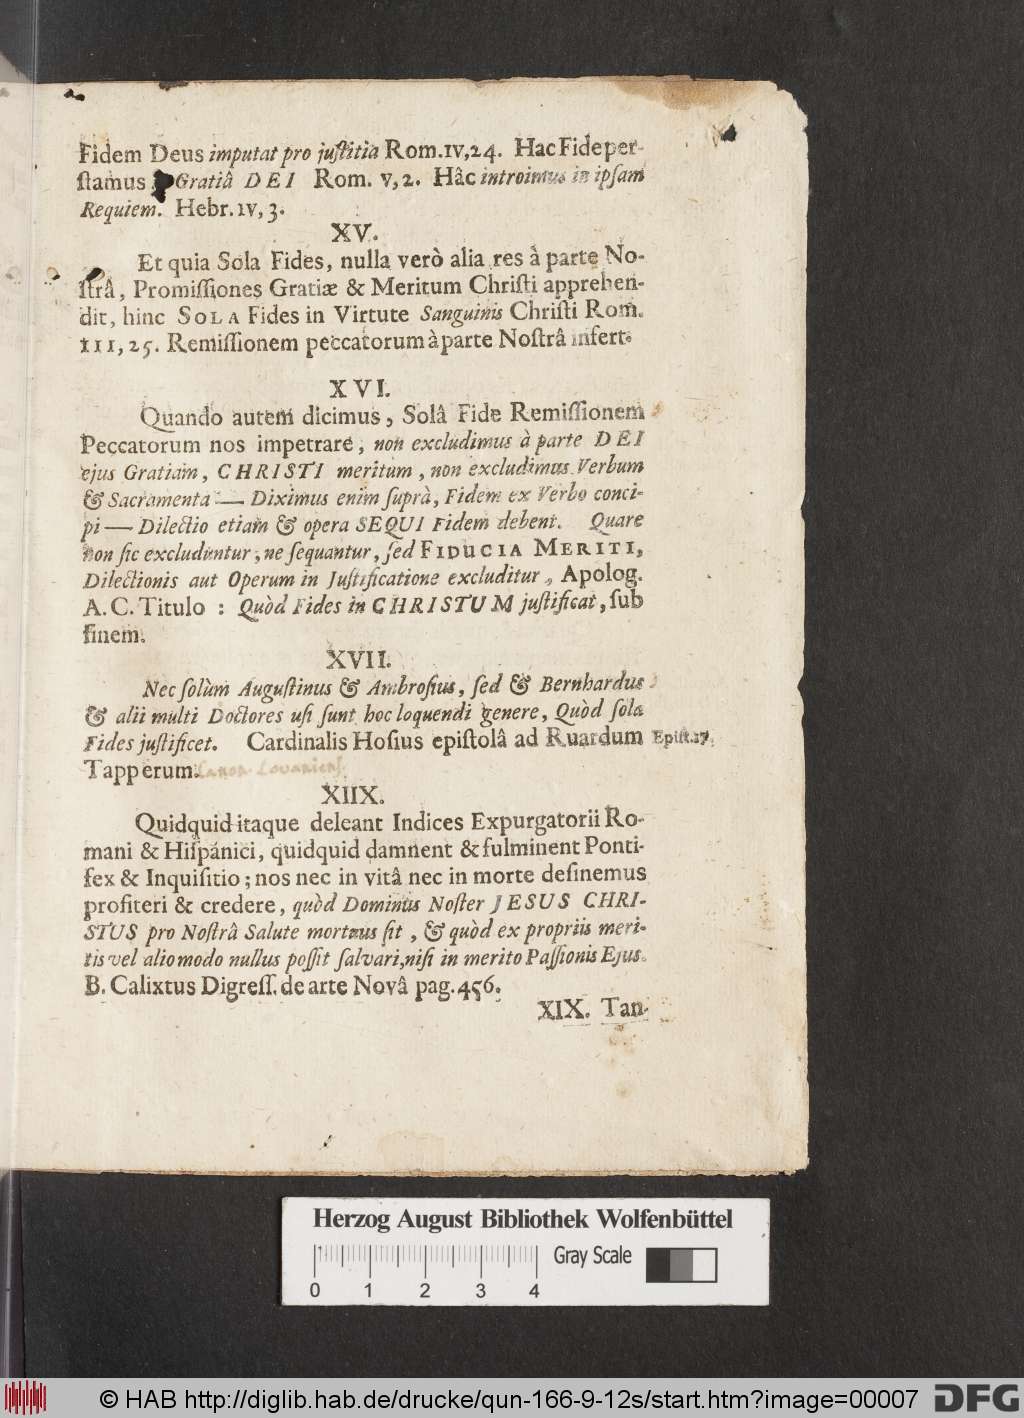 Fidem Deus imputat pro juſtitia Rom. IV, 24. Hac Fide per-
ſtamus Gratiâ DEI Rom. V, 2. Hâc introimus in ipſam
Requiem. Hebr. IV, 3.
XV.
Et quia Sola Fides, nulla verò alia res à parte No-
ſtrâ, Promiſſiones Gratiæ & Meritum Chriſti apprehen-
dit, hinc SOLA Fides in Virtute Sanguinis Chriſti Rom.
III, 25. Remiſſionem peccatorum à parte Noſtrâ infert.
XVI.
Quando autem dicimus, Solâ Fide Remiſſionem
Peccatorum nos impetrare, non excludimus à parte DEI
ejus Gratiam, CHRISTI meritum, non excludimus Verbum
& Sacramenta — Diximus enim ſuprà, Fidem ex Verbo conci-
pi — Dilectio etiam & opera SEQUI Fidem debent. Quare
non ſic excluduntur, ne ſequantur, ſed FIDUCIA MERITI,
Dilectionis aut Operum in Juſtificatione excluditur, Apolog.
A. C. Titulo : Quòd Fides in CHRISTUM juſtificat, ſub
finem.
XVII.
Nec ſolùm Auguſtinus & Ambroſius, ſed & Bernhardus
& alii multi Doctores uſi ſunt hoc loquendi genere, Quòd ſola
Fides juſtificet. Cardinalis Hoſius epiſtolâ ad Ruardum Epiſt. 17.
Tapperum. Canon. Lovaniens.
XIIX.
Quidquid itaque deleant Indices Expurgatorii Ro-
mani & Hiſpánici, quidquid damnent & fulminent Ponti-
fex & Inquiſitio; nos nec in vitâ nec in morte deſinemus
profiteri & credere, quòd Dominus Noſter JESUS CHRI-
STUS pro Noſtrâ Salute mortuus ſit, & quòd ex propriis meri-
tis vel alio modo nullus poſſit ſalvari, niſi in merito Paſſionis Ejus.
B. Calixtus Digreſſ. de arte Novâ pag. 456.
XIX. Tan-
Herzog August Bibliothek Wolfenbüttel
Gray Scale
0 1 2 3 4
© HAB http://diglib.hab.de/drucke/qun-166-9-12s/start.htm?image=00007 DFG